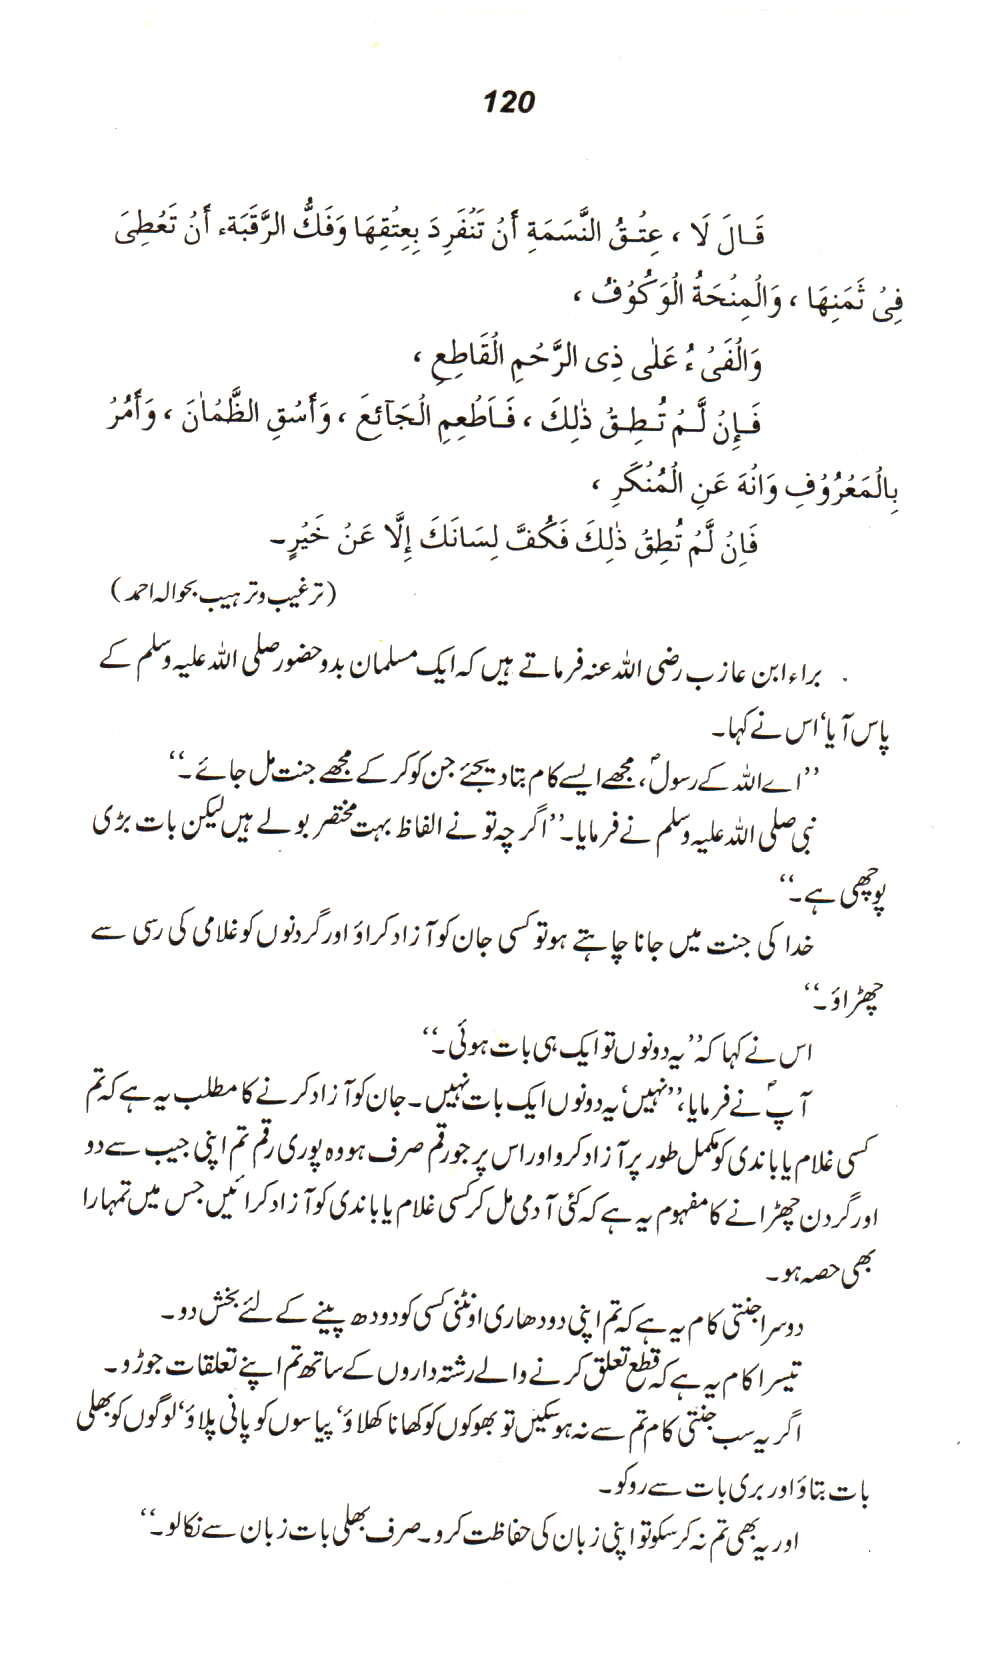 120
قَالَ لَا ، عِتْقُ النَّسَمَةِ أَنْ تَنْفَرِدَ بِعِتْقِهَا وَفَكُّ الرَّقَبَةِ أَنْ تُعْطِىَ
فِىْ ثَمَنِهَا ، وَالْمِنْحَةُ الْوَكُوْفُ ،
وَالْفَىْءُ عَلٰى ذِى الرَّحْمِ الْقَاطِعِ ،
فَإِنْ لَّمْ تُطِقْ ذٰلِكَ ، فَاَطْعِمِ الْجَآئِعَ ، وَأَسْقِ الظَّمْاٰنَ ، وَأْمُرْ
بِالْمَعْرُوْفِ وَانْهَ عَنِ الْمُنْكَرِ ،
فَاِنْ لَّمْ تُطِقْ ذٰلِكَ فَكُفَّ لِسَانَكَ إِلَّا عَنْ خَيْرٍ۔
(ترغیب و ترہیب بحوالہ احمد)
براء ابن عازب رضی اللہ عنہ فرماتے ہیں کہ ایک مسلمان بدو حضور صلی اللہ علیہ وسلم کے
پاس آیا‘ اس نے کہا۔
’’اے اللہ کے رسولؐ، مجھے ایسے کام بتا دیجئے جن کو کر کے مجھے جنت مل جائے۔‘‘
نبی صلی اللہ علیہ وسلم نے فرمایا۔ ’’اگرچہ تو نے الفاظ بہت مختصر بولے ہیں لیکن بات بڑی
پوچھی ہے۔‘‘
خدا کی جنت میں جانا چاہتے ہو تو کسی جان کو آزاد کراؤ اور گردنوں کو غلامی کی رسی سے
چھڑاؤ۔‘‘
اس نے کہا کہ ’’یہ دونوں تو ایک ہی بات ہوئی۔‘‘
آپؐ نے فرمایا، ’’نہیں‘ یہ دونوں ایک بات نہیں۔ جان کو آزاد کرنے کا مطلب یہ ہے کہ تم
کسی غلام یا باندی کو مکمل طور پر آزاد کرو اور اس پر جو رقم صرف ہو وہ پوری رقم تم اپنی جیب سے دو
اور گردن چھڑانے کا مفہوم یہ ہے کہ کئی آدمی مل کر کسی غلام یا باندی کو آزاد کرائیں جس میں تمہارا
بھی حصہ ہو۔
دوسرا جنتی کام یہ ہے کہ تم اپنی دودھاری اونٹنی کسی کو دودھ پینے کے لئے بخش دو۔
تیسرا کام یہ ہے کہ قطع تعلق کرنے والے رشتہ داروں کے ساتھ تم اپنے تعلقات جوڑو۔
اگر یہ سب جنتی کام تم سے نہ ہو سکیں تو بھوکوں کو کھانا کھلاؤ‘ پیاسوں کو پانی پلاؤ‘ لوگوں کو بھلی
بات بتاؤ اور بری بات سے روکو۔
اور یہ بھی تم نہ کر سکو تو اپنی زبان کی حفاظت کرو۔ صرف بھلی بات زبان سے نکالو۔‘‘